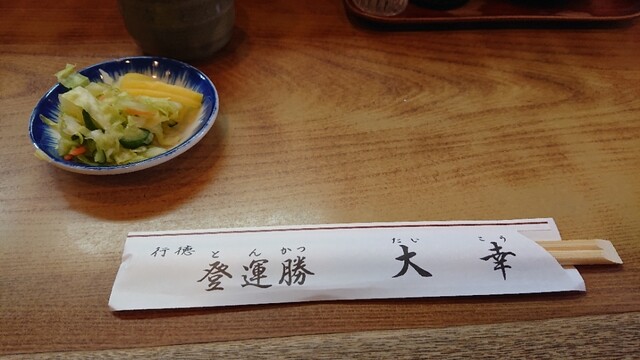 行徳 登運勝 大幸
とんかつ たいこう